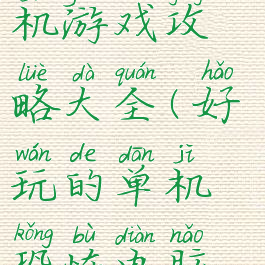 机游戏攻
lüè dà quán hǎo
略大全(好
wán de dān jī
玩的单机
kǒng bù diàn nǎo
恐怖电脑